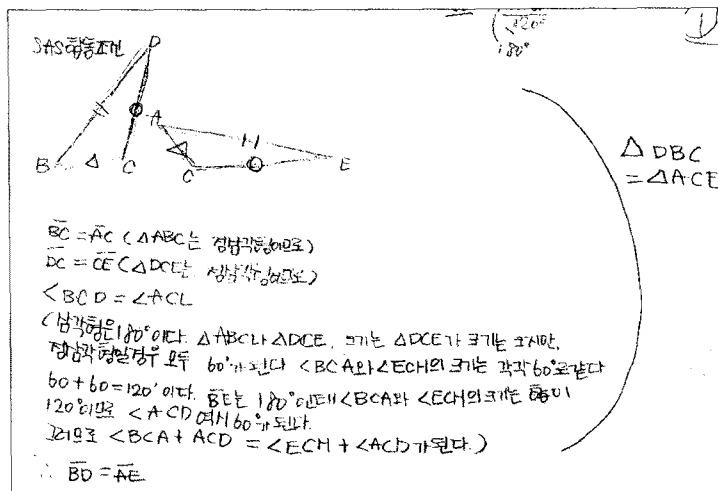 SAS합동조건
120°
180°
D
A
B
C
C
E
△DBC
=△ACE
BC = AC (△ABC는 정삼각형이므로)
DC = CE (△DCE는 정삼각형이므로)
<BCD = <ACE
(삼각형은 180°이다. △ABC나 △DCE, 크기는 △DCE가 크기는 크지만,
정삼각형일경우 모두 60°가 된다 <BCA와 <ECH의 크기는 각각 60°로 같다
60+60=120°이다. BE는 180°인데 <BCA와 <ECH의 크기는 합이
120°이므로 <ACD 역시 60°가 된다.
그러므로 <BCA + ACD = <ECH + <ACD가 된다.)
∴ BD = AE